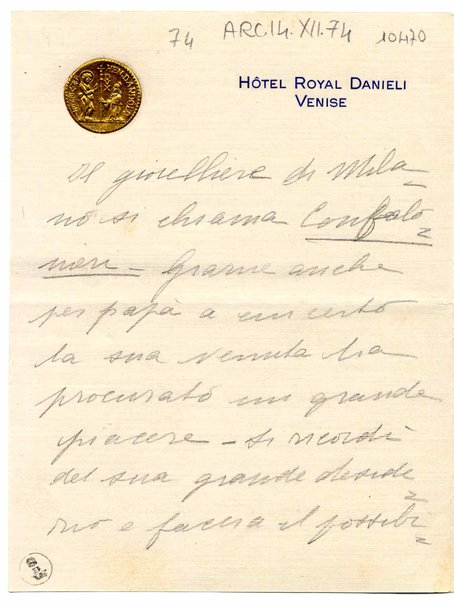 74 ARC14.XII.74 10470
HÔTEL ROYAL DANIELI
VENISE
Il gioielliere di Mila=
no si chiama Confalo=
nieri – Grazie anche
per papà a cui certo
la sua venuta ha
procurato un grande
piacere – si ricordi
del suo grande deside=
rio e faccia il possibi=